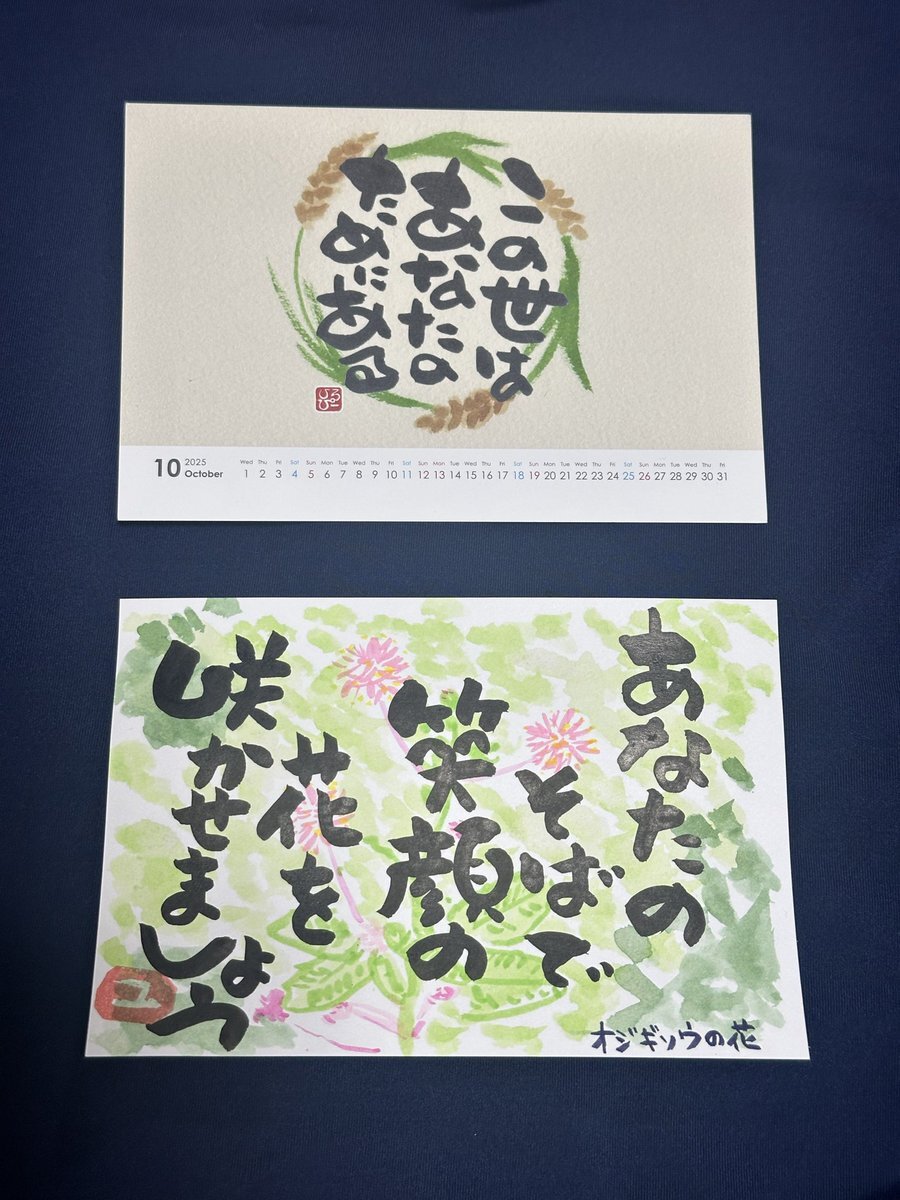 この世は
あなたの
ために ある
10 2025 October
Wed Thu Fri Sat Sun Mon Tue Wed Thu Fri Sat Sun Mon Tue Wed Thu Fri Sat Sun Mon Tue Wed Thu Fri Sat Sun Mon Tue Wed Thu Fri
1 2 3 4 5 6 7 8 9 10 11 12 13 14 15 16 17 18 19 20 21 22 23 24 25 26 27 28 29 30 31
あなたの
そばで
笑顔の
花を
咲かせましょう
オジギソウの花